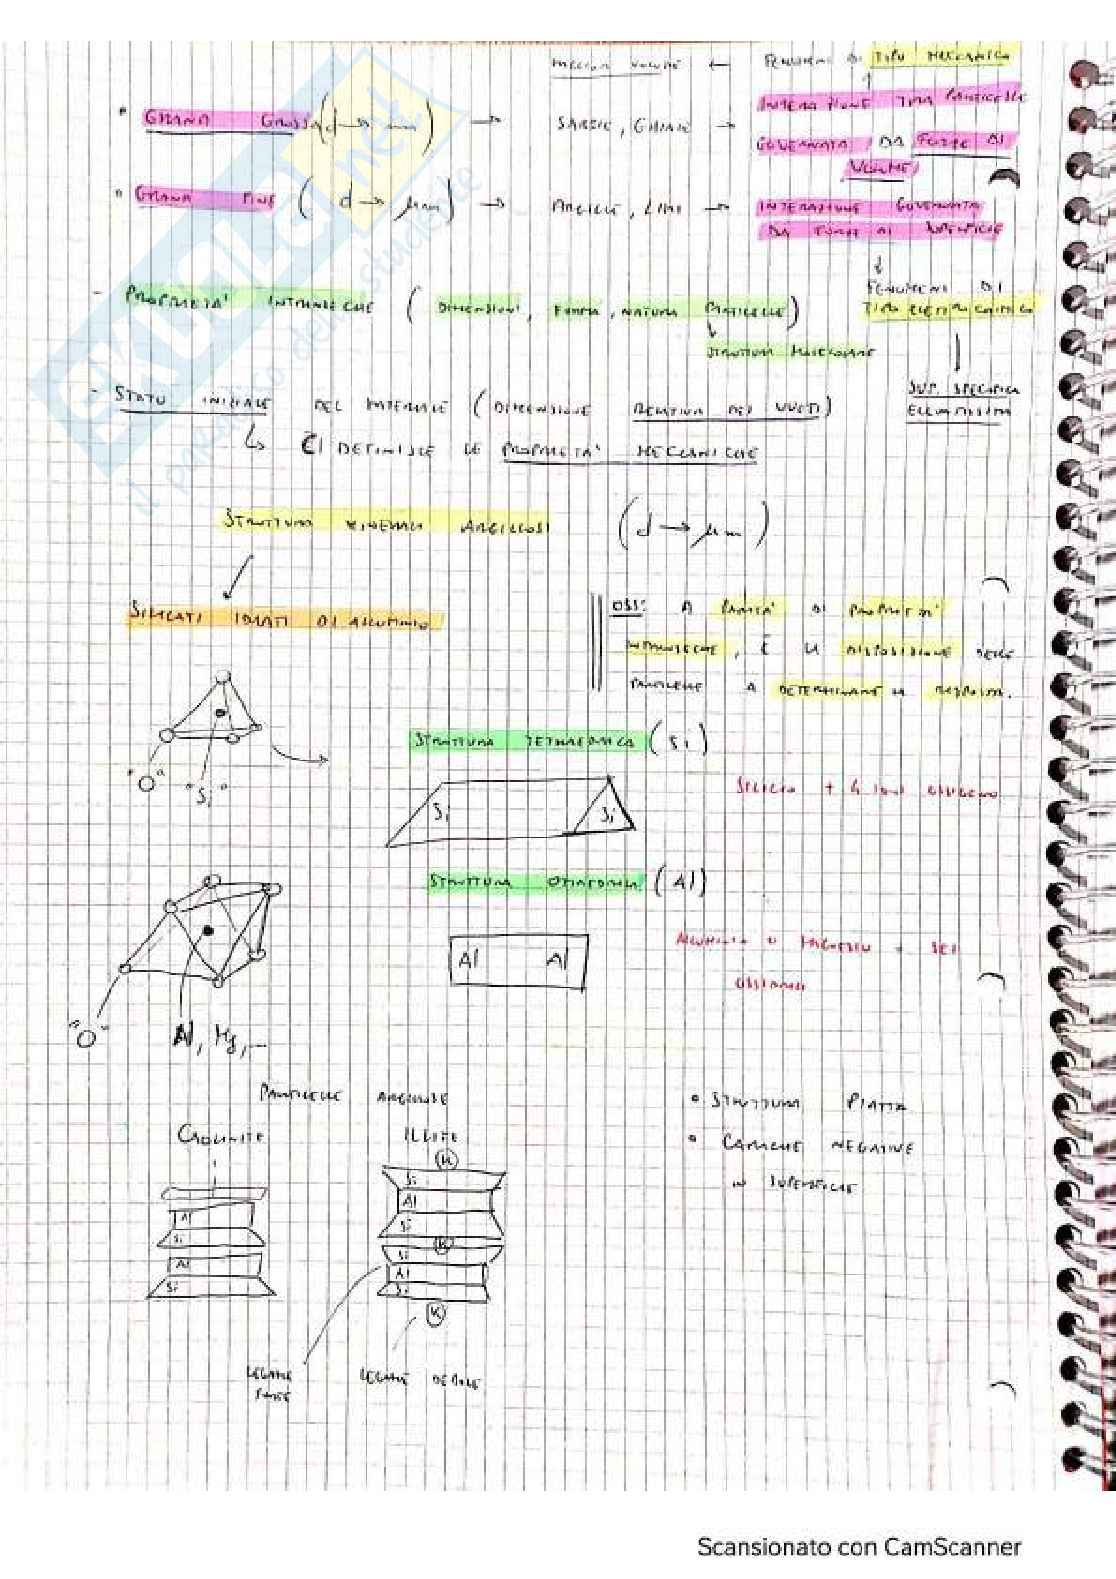 MAGGIOR VOLUME ← FENOMENI DI TIPO MECCANICO
• GRANA GROSSA (d → mm) → SABBIE, GHIAIE → INTERAZIONE TRA PARTICELLE
GOVERNATA DA FORZE DI
VOLUME
• GRANA FINE (d → μm) → ARGILLE, LIMI → INTERAZIONE GOVERNATA
DA FORZE DI SUPERFICIE
↓
FENOMENI DI
TIPO ELETTROCHIMICO
↓
SUP. SPECIFICA
ELEVATISSIMA
- PROPRIETA' INTRINSECHE (DIMENSIONI, FORMA, NATURA PARTICELLE)
↓
STRUTTURA MOLECOLARE
- STATO INIZIALE DEL MATERIALE (DIMENSIONE RELATIVA DEI VUOTI)
↳ CI DEFINISCE LE PROPRIETA' MECCANICHE
STRUTTURA MINERALI ARGILLOSI (d → μm)
SILICATI IDRATI DI ALLUMINIO
OSS: A PARITA' DI PROPRIETA'
INTRINSECHE, È LA DISPOSIZIONE DELLE
PARTICELLE A DETERMINARE LA RISPOSTA.
"O" "Si"
STRUTTURA TETRAEDRICA (Si)
Si Si
SILICIO + 4 IONI OSSIGENO
STRUTTURA OTTAEDRICA (Al)
Al Al
ALLUMINIO O MAGNESIO + SEI
OSSIGENO
"O" Al, Mg, ...
PARTICELLE ARGILLOSE
• STRUTTURA PIATTA
• CARICHE NEGATIVE
IN SUPERFICIE
CAOLINITE
Al
Si
Al
Si
ILLITE
K
Si
Al
Si
K
Si
Al
Si
K
LEGAME
FORTE
LEGAME DEBOLE
SKUOLA.net
il paradiso dello studente
Scansionato con CamScanner